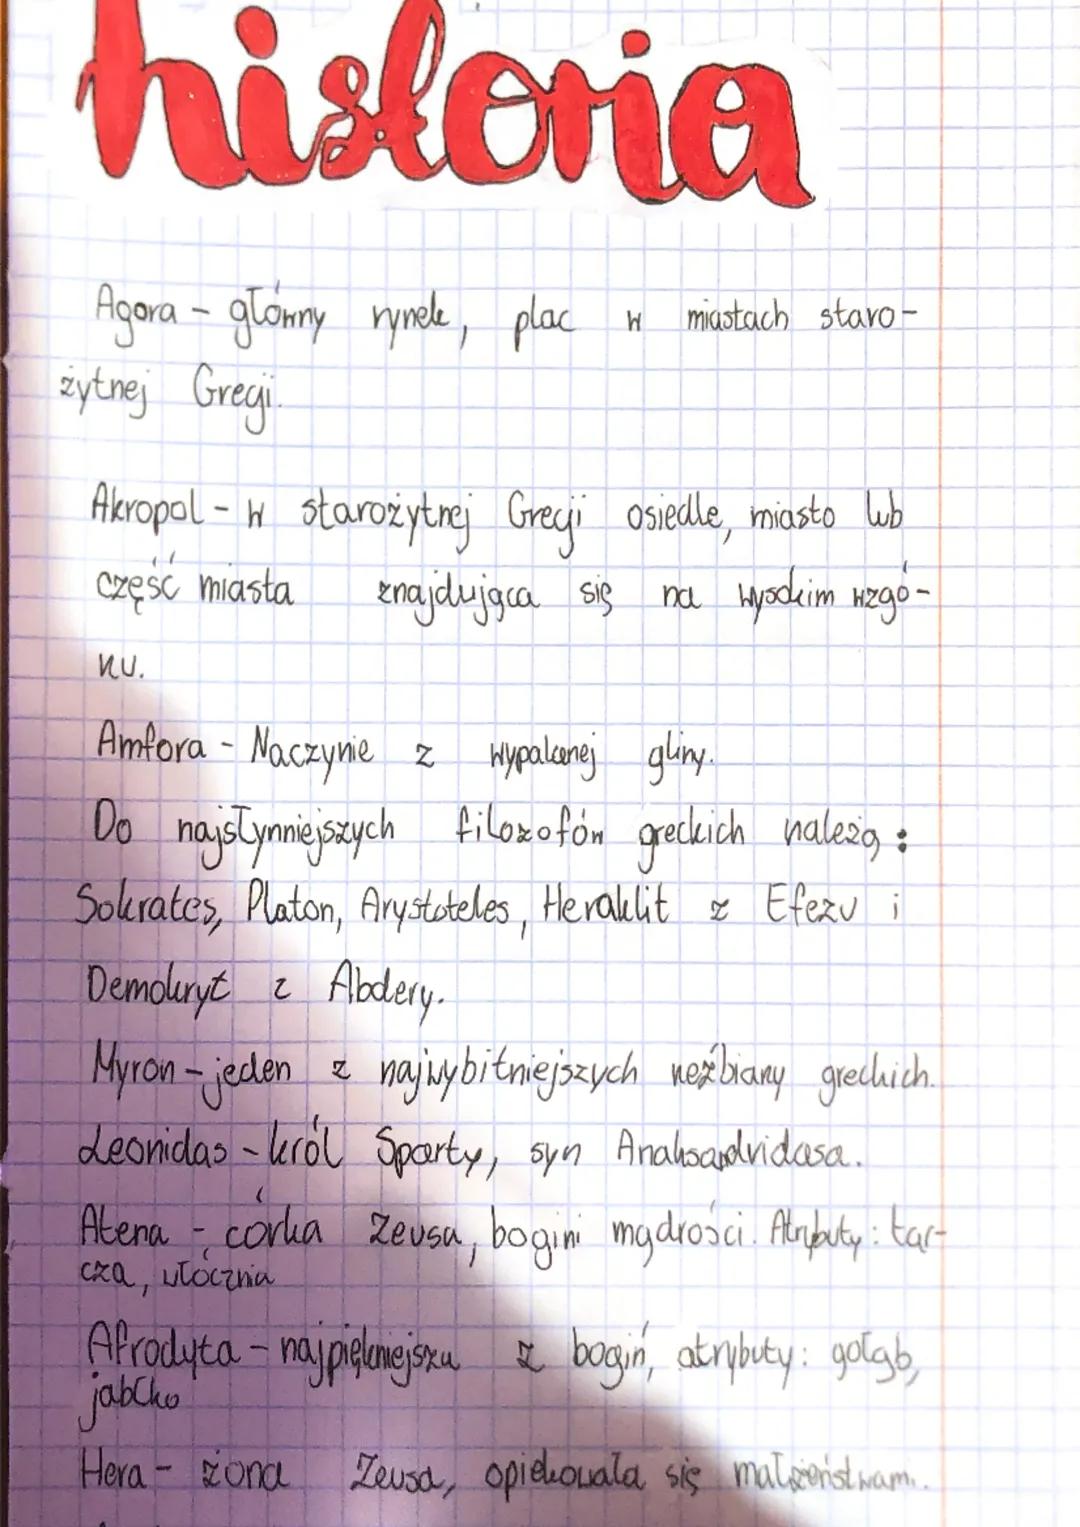 historia
Agora - główny rynek, plac w miastach staro-
żytnej Grecji.
Akropol - w starożytnej Grecji osiedle, miasto lub
część miasta znajdująca się na wysokim wzgó-
rzu.
Amfora - Naczynie z wypalanej gliny.
Do najsłynniejszych filozofów greckich należą :
Sokrates, Platon, Arystoteles, Heraklit z Efezu i
Demokryt z Abdery.
Myron - jeden z najwybitniejszych rzeźbiarzy greckich.
Leonidas - król Sparty, syn Anaksandridasa.
Atena - córka Zeusa, bogini mądrości. Atrybuty : tar-
cza, włócznia
Afrodyta - najpiękniejsza z bogiń, atrybuty: gołąb,
jabłko
Hera - żona Zeusa, opiekowała się małżeństwami.